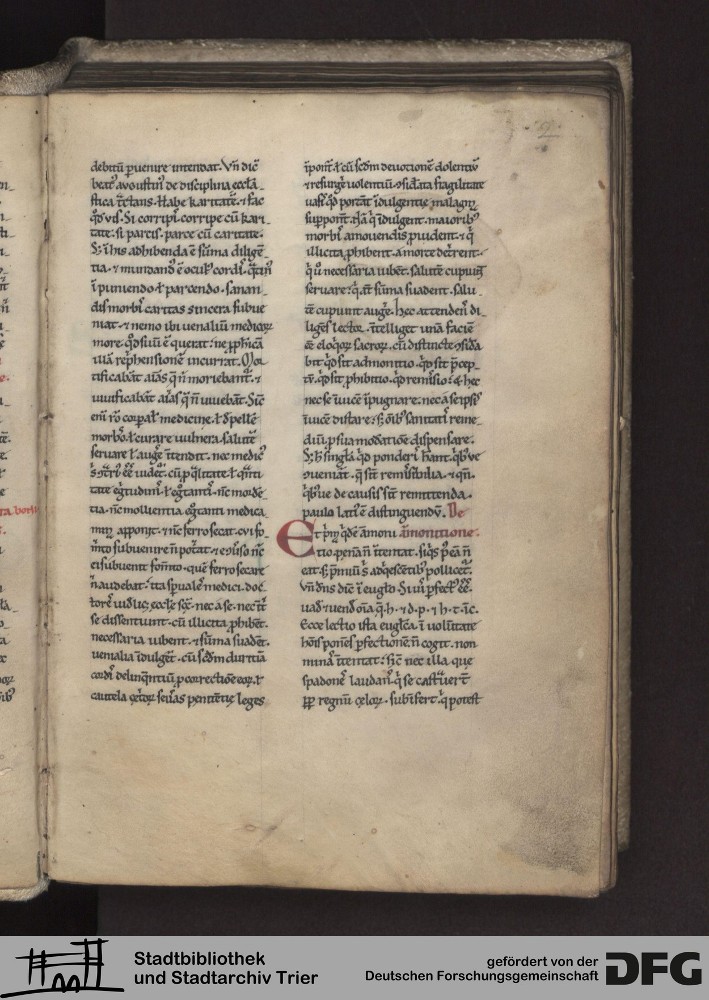 debitū puenire intendat. Vn̄ dic̄
beat' avgustin' de disciplina eccl̄a_
stica t̄ctans. Habe karitatē. ⁊ fac
qd̄ vis. Si corripis. corripe cū kari_
tate. si parcis. parce cū caritate.
S; ī his adhibenda ē sūma diligē_
tia. ⁊ mundand' ē ocul' cordi'.
ī puniendo ł parcendo. sanan_
dis morbi' caritas sincera subue
niat. ⁊ nemo ibi uenaliū medicoꝝ
more. qd̄ suū ē querat. ne ꝓphicā
illā rep̄hensionē incurrat. Mor_
tificabāt aīas q̄ n̄ moriebant'. ⁊
uiuificabāt aīas q̄ n̄ uiuebāt. Sic
eni ro corꝑal' medicine. ł depelle
morbos. ł curare uulnera. salutē
seruare ł augē intendit. nec medic'
tate egritudinū. ł egrotanti. nc̄ morde
tia. nc̄ mollientia egrotanti medica_
mīa apponit. ⁊ nc̄ ferro secat. cui fo_
m̄to subuenire n̄ potat. ⁊ nc̄
ei subuenit fom̄to. quē ferro secare
n̄ audebat. ita sp̄uale' medici. doc_
tores uidl; eccl̄e sc̄e. nec a se. nec
se dissentiunt. cū illicita ꝓhibēt.
necessaria iubent. ⁊ sūma suadēt.
uenialia īdulgēt. cū sedm duritiā
cordi' delinqntiū ꝓ correctiōe eoꝝ. ł
cautela ceteroꝝ seueras penitētię leges
īponūt. ł cū scdm deuotionē dolentiū
⁊ resurge uolentiū. ɔsidata fragilitate
uasi' qd̄ portāt īdulgentię malagm̄
supponūt. īdulgent. maiorib'
morbi' amouendis ꝓuident. ⁊ q̄
illicita ꝓhibent. a morte detrent.
q̄ ū necessaria iubēt. salutē cupiunt
seruare. q̄ āt sūma suadent. salu_
tē cupiunt augē. Hec attendens di_
ligēs lector. ītelliget unā faciē
eē eloqioꝝ sacroꝝ. cū distincte ɔsida
bit qd̄ sit admonitio. qd̄ sit p̄cep_
tū. qd̄ sit ꝓhibitio. qd̄ remissio. ⁊ hec
nec se īuicē īpugnare. nec a seipsis
īuicē distare. s; om̄ib' sanitati' reme_
diū. ꝑ sua moderatiōe dispensare.
S; h singla qd̄ ponderi' habāt. qb' ue
ɔueniāt. q̄ sit remissibilia. ⁊ qn̄.
qb' ue de causis sit remittenda.
paulo lati' ē distinguendū. De
Et primū qdē amoni āmonitione.
tio. penā n̄ intentat. siqs p ea n̄
eat. s; p̄miū s; adqescētib' pollicet'.
Vn̄ dn̄s dic̄ ī euḡlo. Si uis ꝑfect' ēē.
uad' ⁊ uend' om̄a q̄. h. ⁊ d. p. ⁊ h. t. ī c.
Ecce lectio ista euglica. ī uolūtate
hois ponēs ꝑfectionē n̄ cogit. non
minā ītentat. Sic nec illa que
spadones laudans. q̄ se castuer̄t
ꝓꝑ regnū celoꝝ. subīfert. q̄ potest
Stadtbibliothek
und Stadtarchiv Trier
gefördert von der
Deutschen Forschungsgemeinschaft
DFG